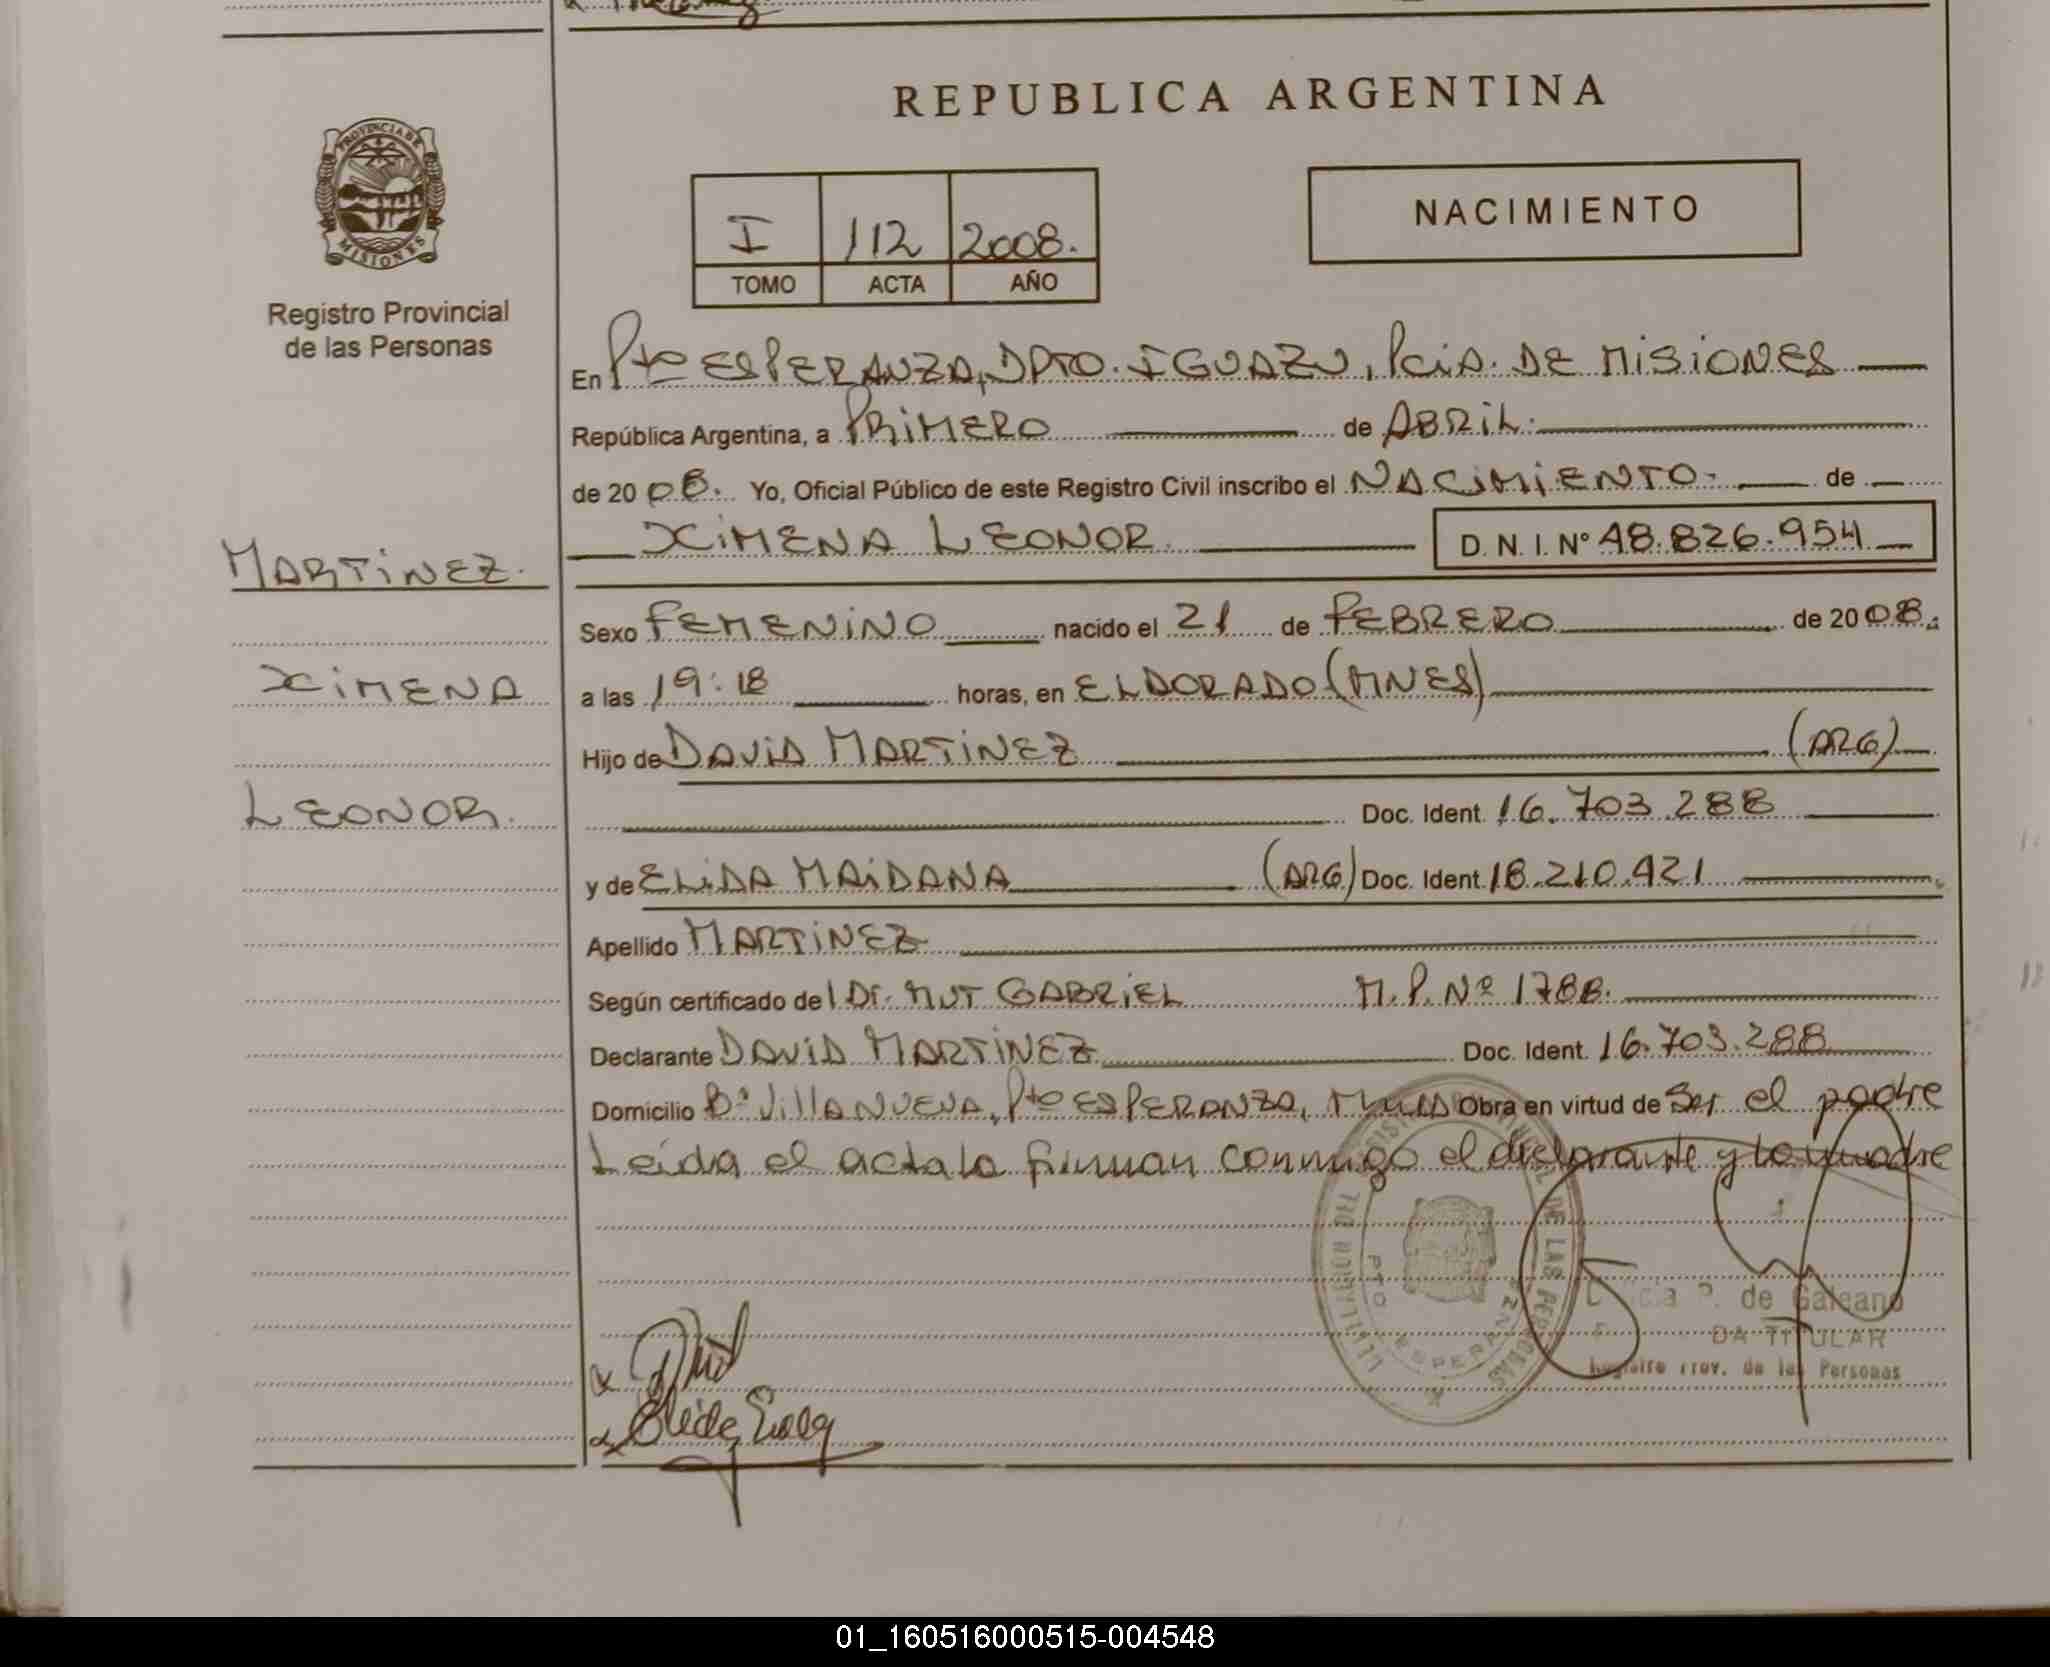 REPUBLICA ARGENTINA
PROVINCIA DE
MISIONES
Registro Provincial
de las Personas
I 112 2008.
TOMO ACTA AÑO
NACIMIENTO
En Pto ESPERANZA, DPTO. IGUAZU, Pcia. DE MISIONES
República Argentina, a PRIMERO de ABRIL.
de 20 08. Yo, Oficial Público de este Registro Civil inscribo el NACIMIENTO- de
XIMENA LEONOR D. N. I. Nº 48.826.954
MARTINEZ.
XIMENA
LEONOR.
Sexo FEMENINO nacido el 21 de FEBRERO de 20 08.
a las 19:18 horas, en ELDORADO (MNES)
Hijo de DAVID MARTINEZ (ARG)
Doc. Ident. 16.703.288
y de ELIDA MAIDANA (ARG) Doc. Ident. 18.210.421
Apellido MARTINEZ
Según certificado del Dr. MUT GABRIEL M.P. Nº 1788.
Declarante DAVID MARTINEZ Doc. Ident. 16.703.288
Domicilio Bº VillA NUEVA, Pto ESPERANZA, Obra en virtud de Ser el padre
Leida el acta la firman conmigo el declarante y la madre
DELEGACION DEL REGISTRO PROVINCIAL DE LAS PERSONAS
PTO ESPERANZA
P. de Galeano
DA TITULAR
Registro Prov. de las Personas
01_160516000515-004548